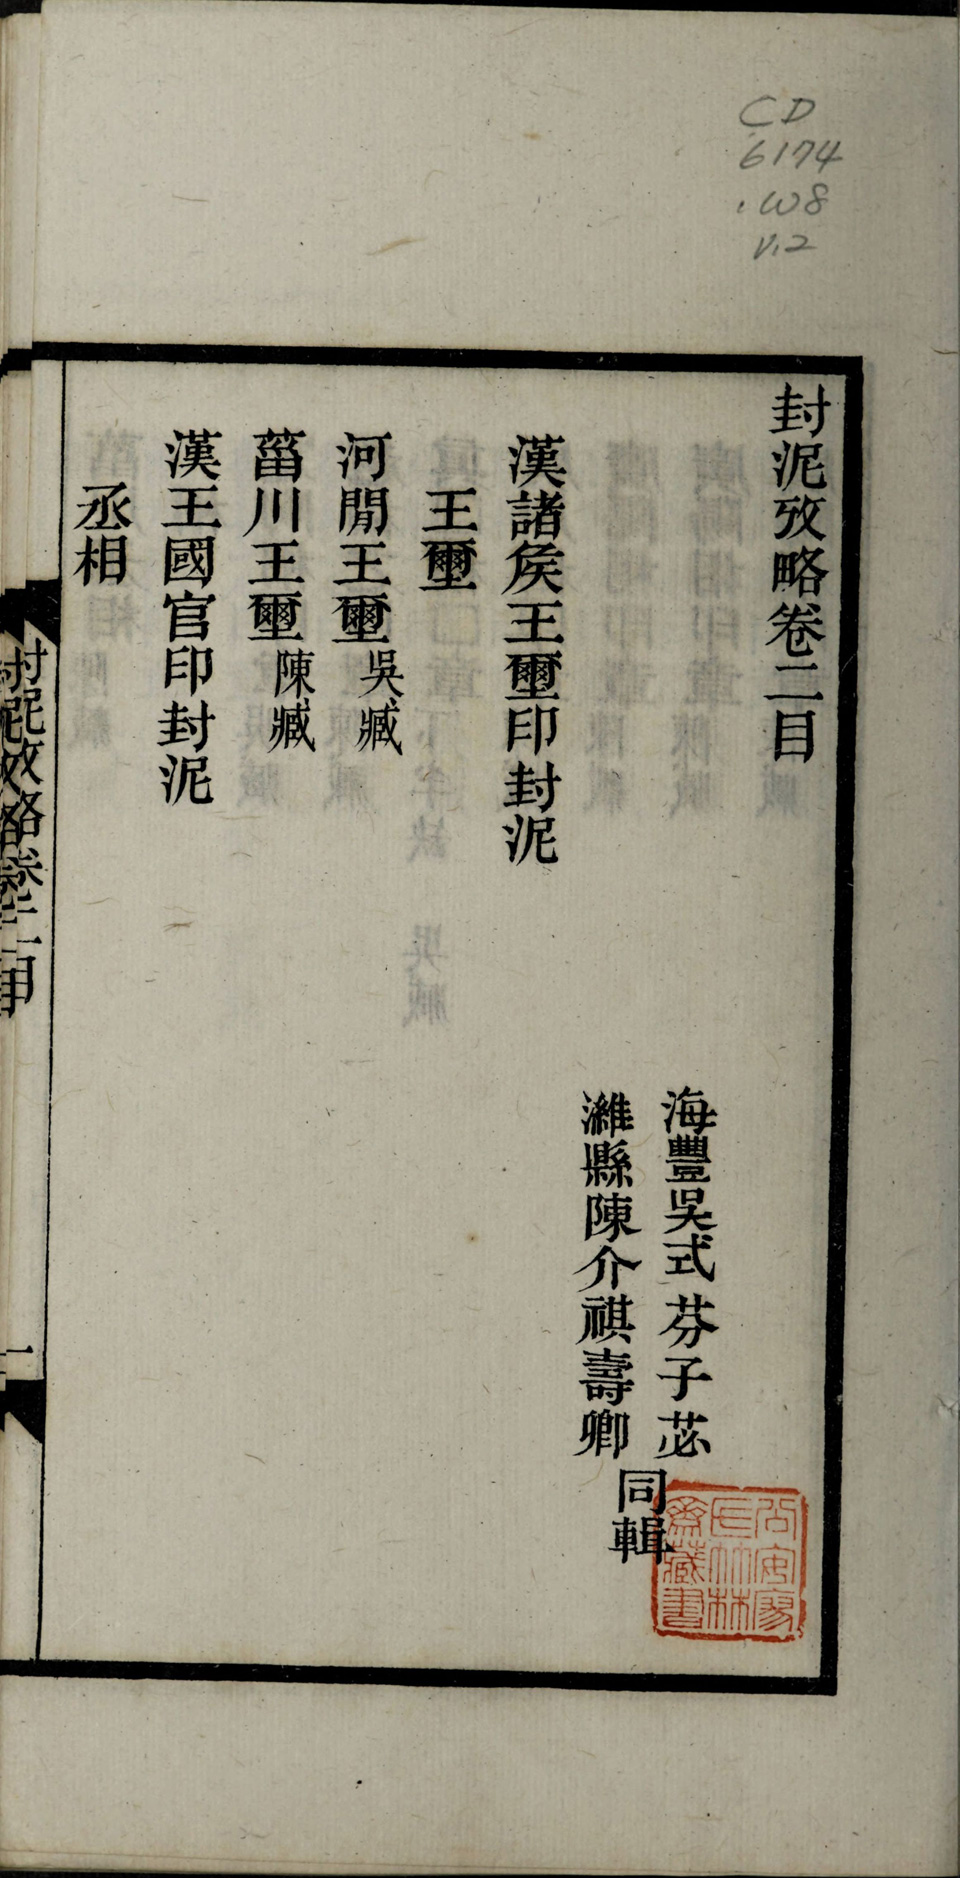 CD
6174
.W8
v.2
封泥攷略卷二目
海豐吳式芬子苾
濰縣陳介祺壽卿
同輯
漢諸矦王璽印封泥
王璽
河閒王璽 吳臧
菑川王璽 陳臧
漢王國官印封泥
丞相
封泥攷略卷二目
一